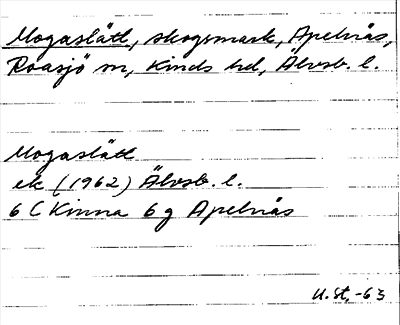 Mogaslätt, skogsmark, Apelnäs,
Roasjö sn, Kinds hd, Älvsb. l.
Mogaslätt
ek (1962) Älvsb. l.
6 C Kinna 6 g Apelnäs
U. St, -63